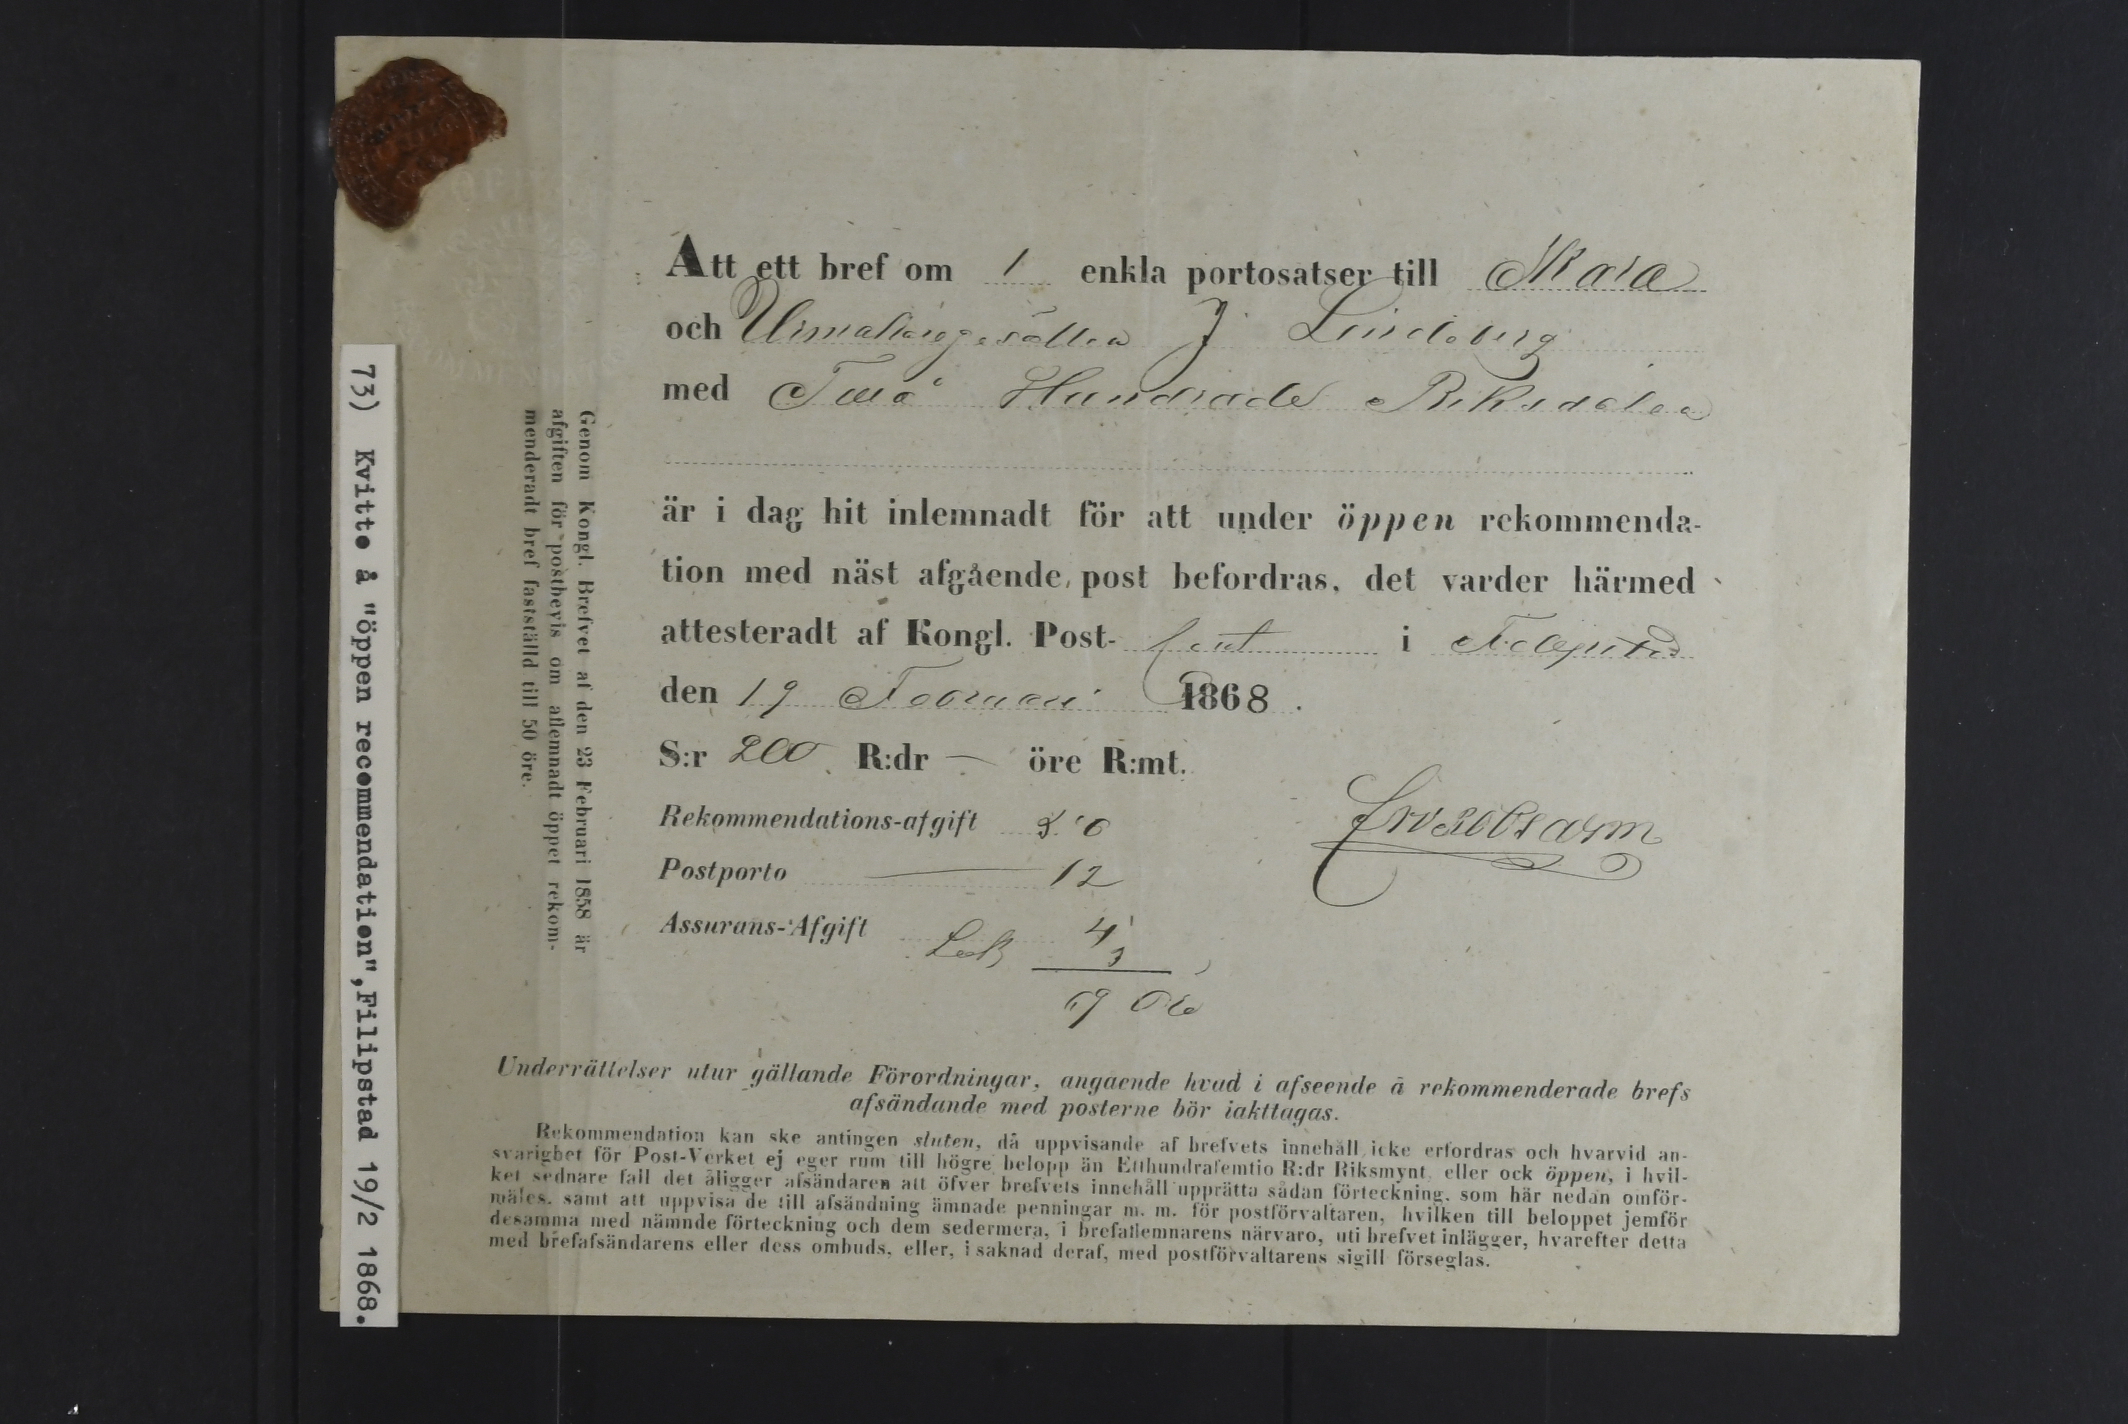 Att ett bref om 1 enkla portosatser till Skara
och Urmakaregesällen J Lindberg
med Två Hundrade Riksdaler
är i dag hit inlemnadt för att under öppen rekommenda-
tion med näst afgående post befordras, det varder härmed
attesteradt af Kongl. Post- Cont i Filipstad
den 19 Februari 1868.
S:r 200 R:dr — öre R:mt.
Rekommendations-afgift
Postporto 12
Assurans-Afgift 4
3
69 Öre
Underrättelser utur gällande Förordningar, angaende hvad i afseende å rekommenderade brefs
afsändande med posterne bör iakttagas.
Rekommendation kan ske antingen sluten, då uppvisande af brefvets innehåll icke erfordras och hvarvid an-
svarighet för Post-Verket ej eger rum till högre belopp än Etthundrafemtio R:dr Riksmynt, eller ock öppen, i hvil-
ket sednare fall det åligger afsändaren att öfver brefvets innehåll upprätta sådan förteckning, som här nedan omför-
mäles, samt att uppvisa de till afsändning ämnade penningar m. m. för postförvaltaren, hvilken till beloppet jemför
desamma med nämnde förteckning och dem sedermera, i brefaflemnarens närvaro, uti brefvet inlägger, hvarefter detta
med brefafsändarens eller dess ombuds, eller, i saknad deraf, med postförvaltarens sigill förseglas.
Genom Kongl. Brefvet af den 23 Februari 1858 är
afgiften för postbevis om aflemnadt öppet rekom-
menderadt bref fastställd till 50 öre.
73) Kvitto å "öppen recommendation", Filipstad 19/2 1868.